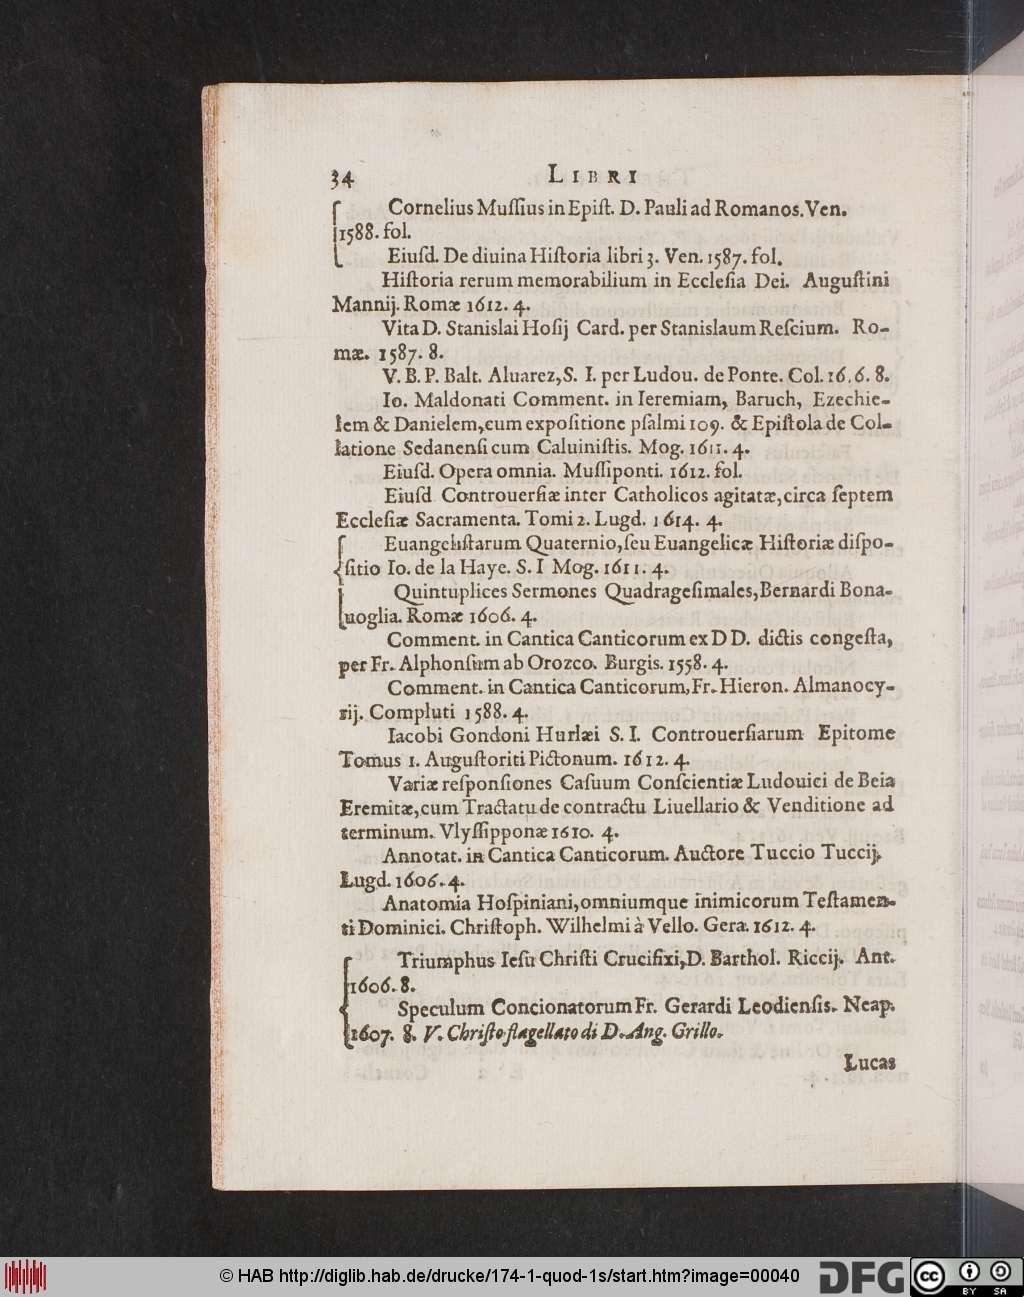 34 LIBRI
Cornelius Muſſius in Epiſt. D. Pauli ad Romanos. Ven.
1588. fol.
Eiuſd. De diuina Hiſtoria libri 3. Ven. 1587. fol.
Hiſtoria rerum memorabilium in Eccleſia Dei. Auguſtini
Mannij. Romæ 1612. 4.
Vita D. Stanislai Hoſij Card. per Stanislaum Reſcium. Ro-
mæ. 1587. 8.
V. B. P. Balt. Aluarez, S. I. per Ludou. de Ponte. Col. 16.6. 8.
Io. Maldonati Comment. in Ieremiam, Baruch, Ezechie-
lem & Danielem, cum expoſitione pſalmi 109. & Epiſtola de Col-
latione Sedanenſi cum Caluiniſtis. Mog. 1611. 4.
Eiuſd. Opera omnia. Muſſiponti. 1612. fol.
Eiuſd Controuerſiæ inter Catholicos agitatæ, circa ſeptem
Eccleſiæ Sacramenta. Tomi 2. Lugd. 1614. 4.
Euangeliſtarum Quaternio, ſeu Euangelicæ Hiſtoriæ diſpo-
ſitio Io. de la Haye. S. I Mog. 1611. 4.
Quintuplices Sermones Quadrageſimales, Bernardi Bona-
uoglia. Romæ 1606. 4.
Comment. in Cantica Canticorum ex D D. dictis congeſta,
per Fr. Alphonſum ab Orozco. Burgis. 1558. 4.
Comment. in Cantica Canticorum, Fr. Hieron. Almanocy-
rij. Compluti 1588. 4.
Iacobi Gondoni Hurlæi S. I. Controuerſiarum Epitome
Tomus 1. Auguſtoriti Pictonum. 1612. 4.
Variæ reſponſiones Caſuum Conſcientiæ Ludouici de Beia
Eremitæ, cum Tractatu de contractu Liuellario & Venditione ad
terminum. Vlyſſipponæ 1610. 4.
Annotat. in Cantica Canticorum. Auctore Tuccio Tuccij.
Lugd. 1606. 4.
Anatomia Hoſpiniani, omniumque inimicorum Teſtamen-
ti Dominici. Chriſtoph. Wilhelmi à Vello. Gera. 1612. 4.
Triumphus Ieſu Chriſti Crucifixi, D. Barthol. Riccij. Ant.
1606. 8.
Speculum Concionatorum Fr. Gerardi Leodienſis. Neap.
1607. 8. V. Chriſto flagellato di D. Ang. Grillo.
Lucas
© HAB http://diglib.hab.de/drucke/174-1-quod-1s/start.htm?image=00040
DFG
cc BY SA